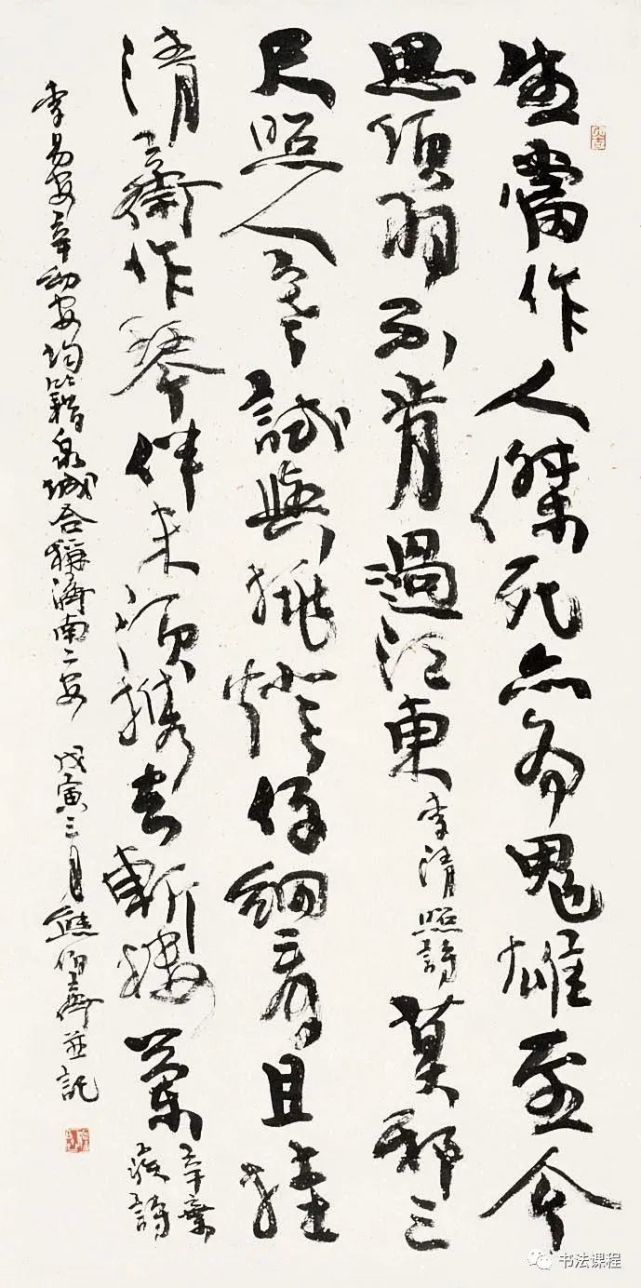 生當作人傑死亦爲鬼雄至今
思項羽不肯過江東李清照詩莫邪三
尺照人寒試與挑燈仔細看且挂
清齋作琴伴未須攜去斬樓蘭辛棄疾詩
李易安辛幼安均籍泉城吾稱濟南二安 戊寅三月熊伯齊並記
书法课程